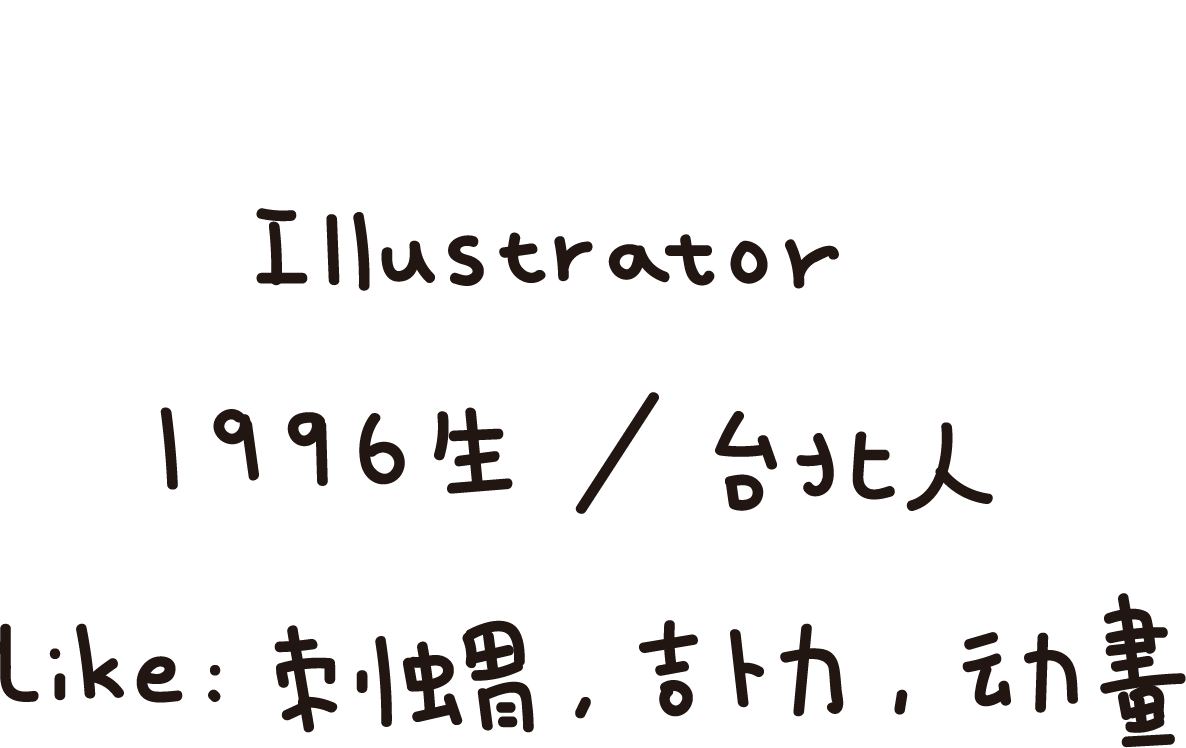 Illustrator
1996生 / 台北人
Like: 刺蝟, 吉卜力, 动畫